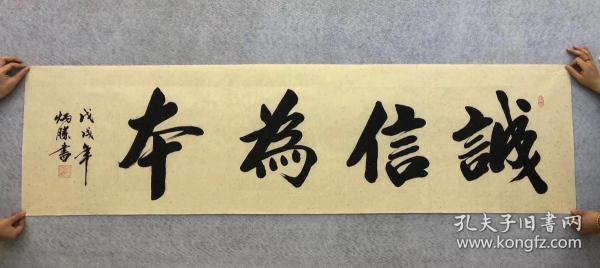 誠信為本
戊戌年
炳勝書
孔夫子旧书网
www.kongfz.com